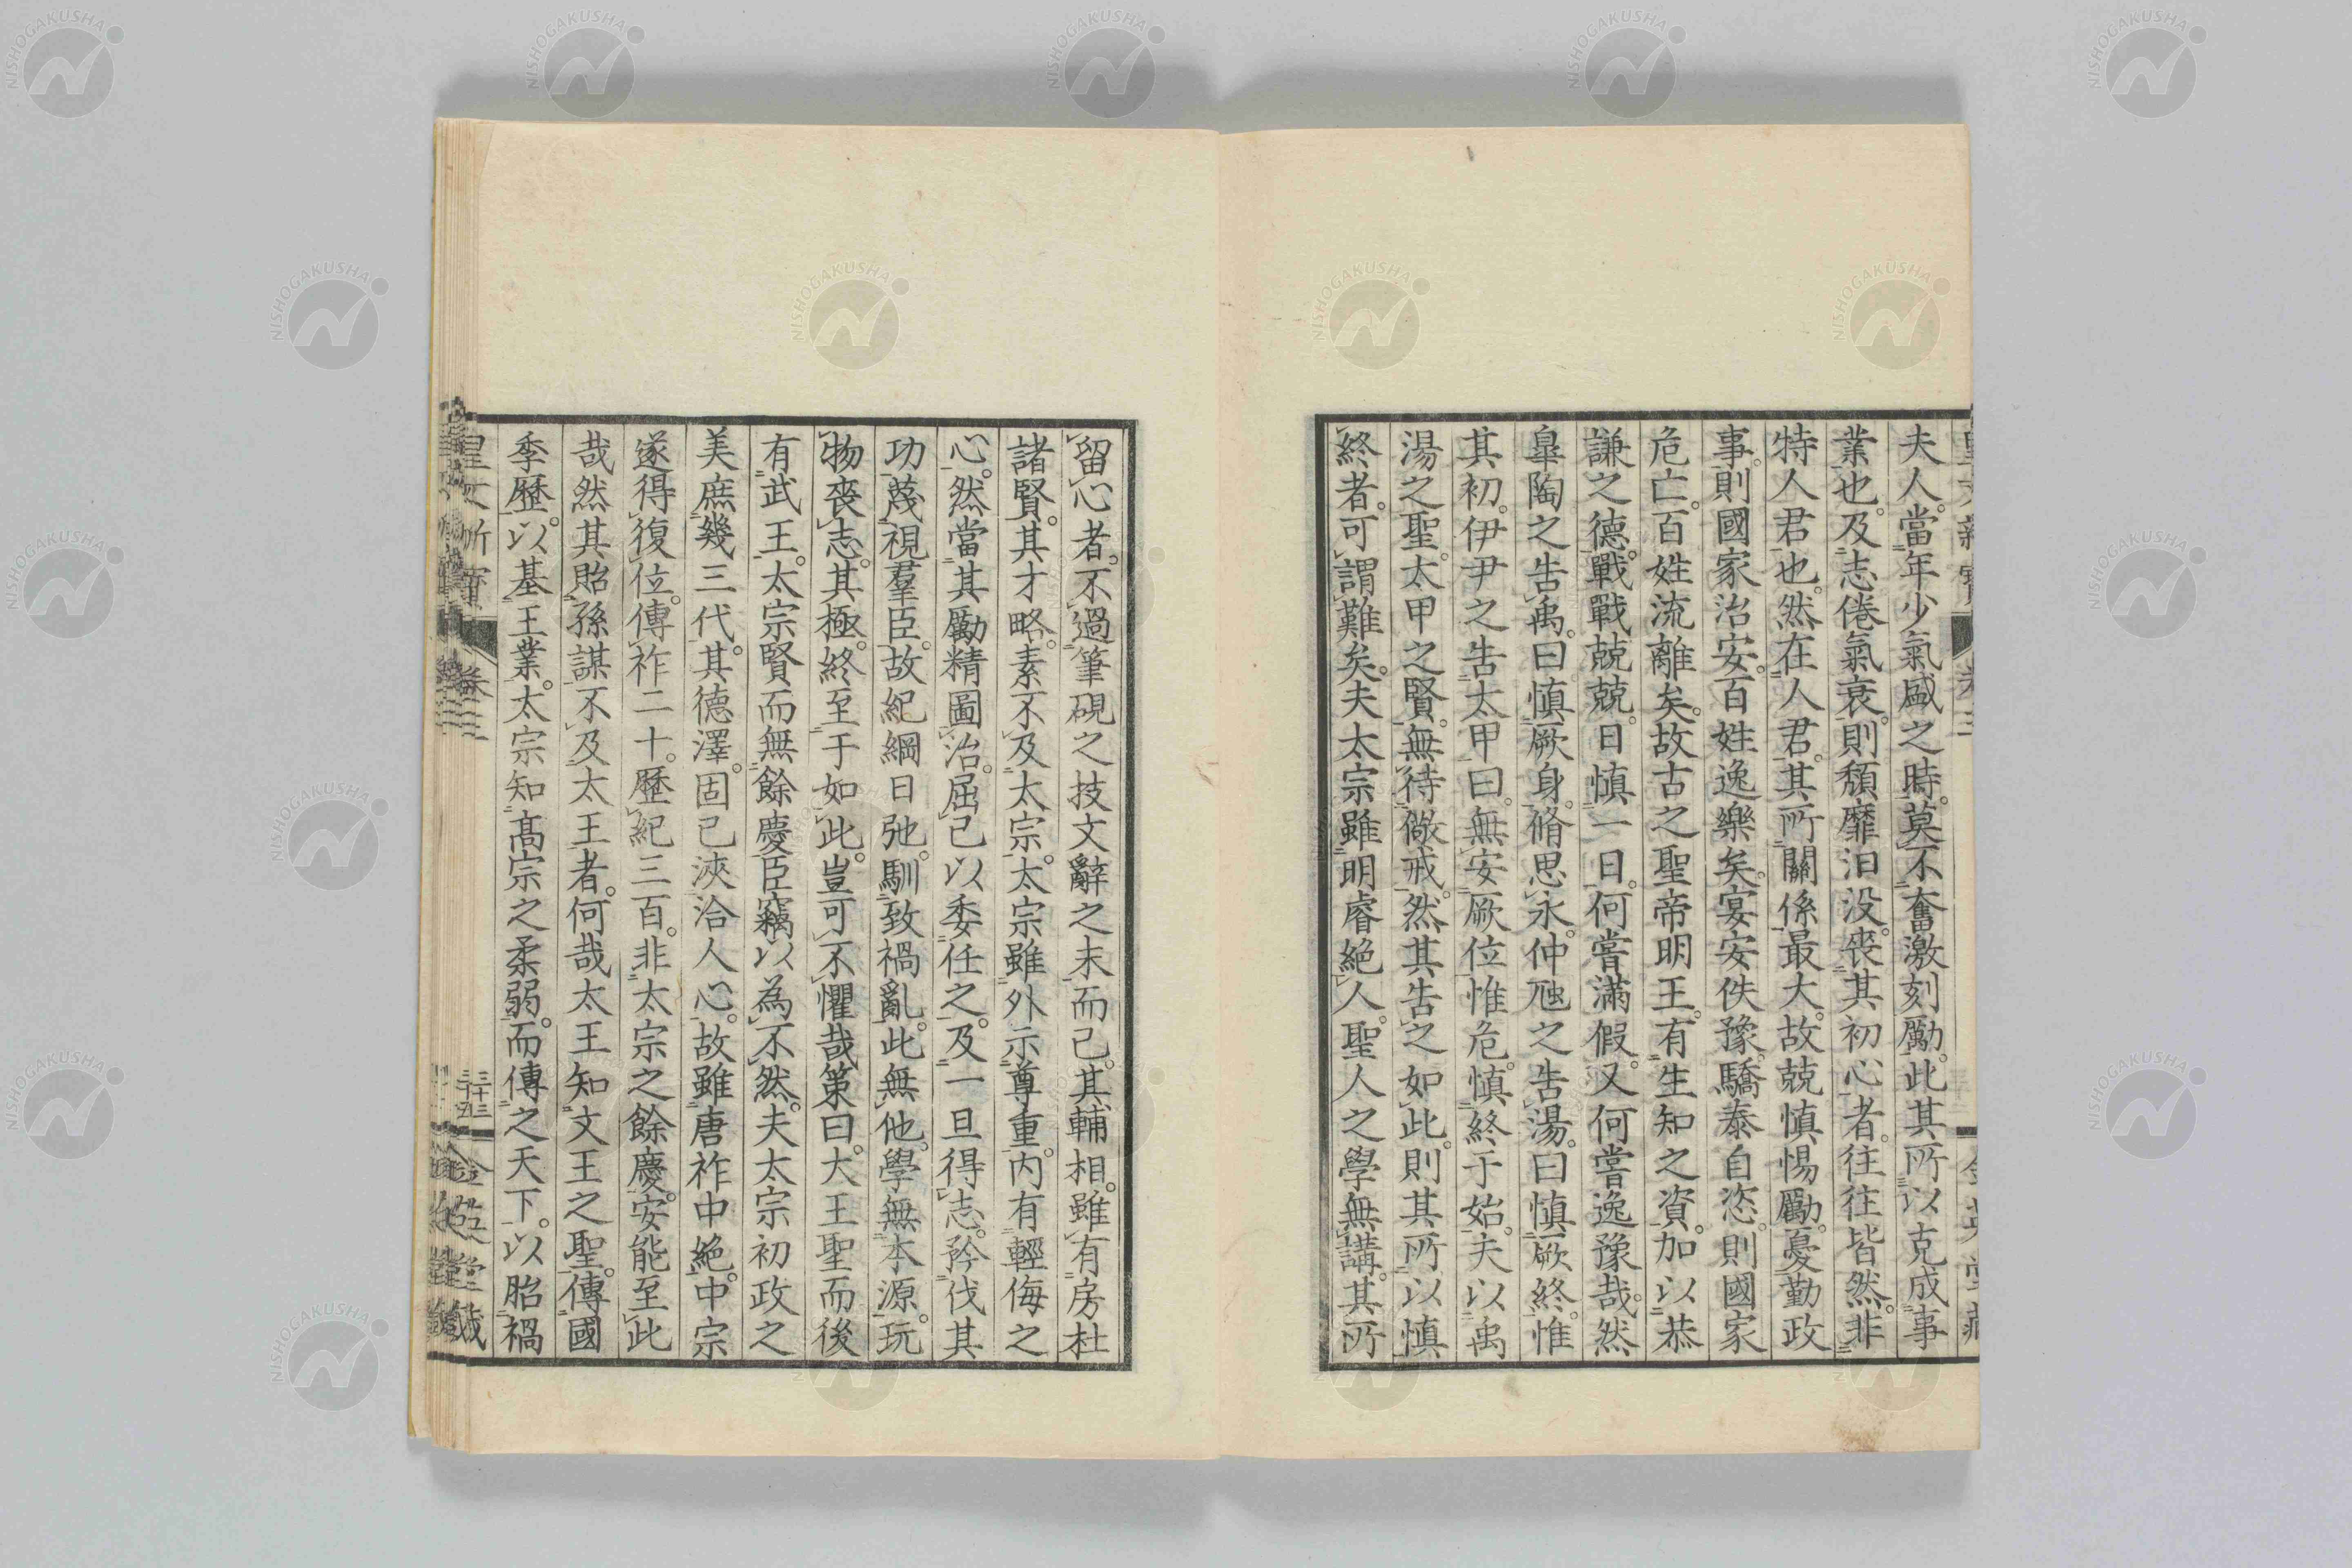 夫人。當年少氣盛之時。莫不奮激刻勵。此其所以克成事
業也。及志倦氣衰。則頹靡汨没。喪其初心者。往往皆然。非
特人君也。然在人君。其所關係最大。故兢慎惕勵。憂勤政
事。則國家治安。百姓逸樂矣。宴安佚豫。驕泰自恣。則國家
危亡。百姓流離矣。故古之聖帝明王。有生知之資。加以恭
謙之德。戰戰兢兢。日慎一日。何嘗滿假。又何嘗逸豫哉。然
皐陶之告禹。曰慎厥身。脩思永。仲虺之告湯。曰慎厥終。惟
其初。伊尹之告太甲曰。無安厥位惟危。慎終于始。夫以禹
湯之聖。太甲之賢。無待儆戒。然其告之如此。則其所以慎
終者。可謂難矣。夫太宗雖明睿絕人。聖人之學無講。其所
留心者。不過筆硯之技文辭之末而已。其輔相。雖有房杜
諸賢。其才略。素不及太宗。太宗雖外示尊重。内有輕侮之
心。然當其勵精圖治。屈己以委任之。及一旦得志。矜伐其
功。蔑視羣臣。故紀綱日弛。馴致禍亂。此無他。學無本源。玩
物喪志。其極。終至于如此。豈可不懼哉。策曰。大王聖而後
有武王。太宗賢而無餘慶。臣竊以為不然。夫太宗初政之
美。庶幾三代。其德澤。固已浹洽人心。故雖唐祚中絕。中宗
遂得復位。傳祚二十。歷紀三百。非太宗之餘慶。安能至此
哉。然其貽孫謀不及太王者。何哉。太王知文王之聖。傳國
季歷。以基王業。太宗知高宗之柔弱。而傳之天下。以胎禍
NISHOGAKUSHA